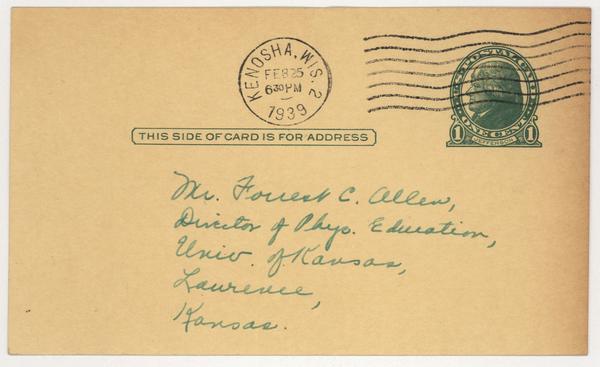 KENOSHA, WIS. 2
FEB 25
6 30 PM
1939
U.S. POSTAL CARD
1 ONE CENT 1
JEFFERSON
THIS SIDE OF CARD IS FOR ADDRESS
Mr. Forrest C. Allen,
Director of Phys. Education,
Univ. of Kansas,
Lawrence,
Kansas.